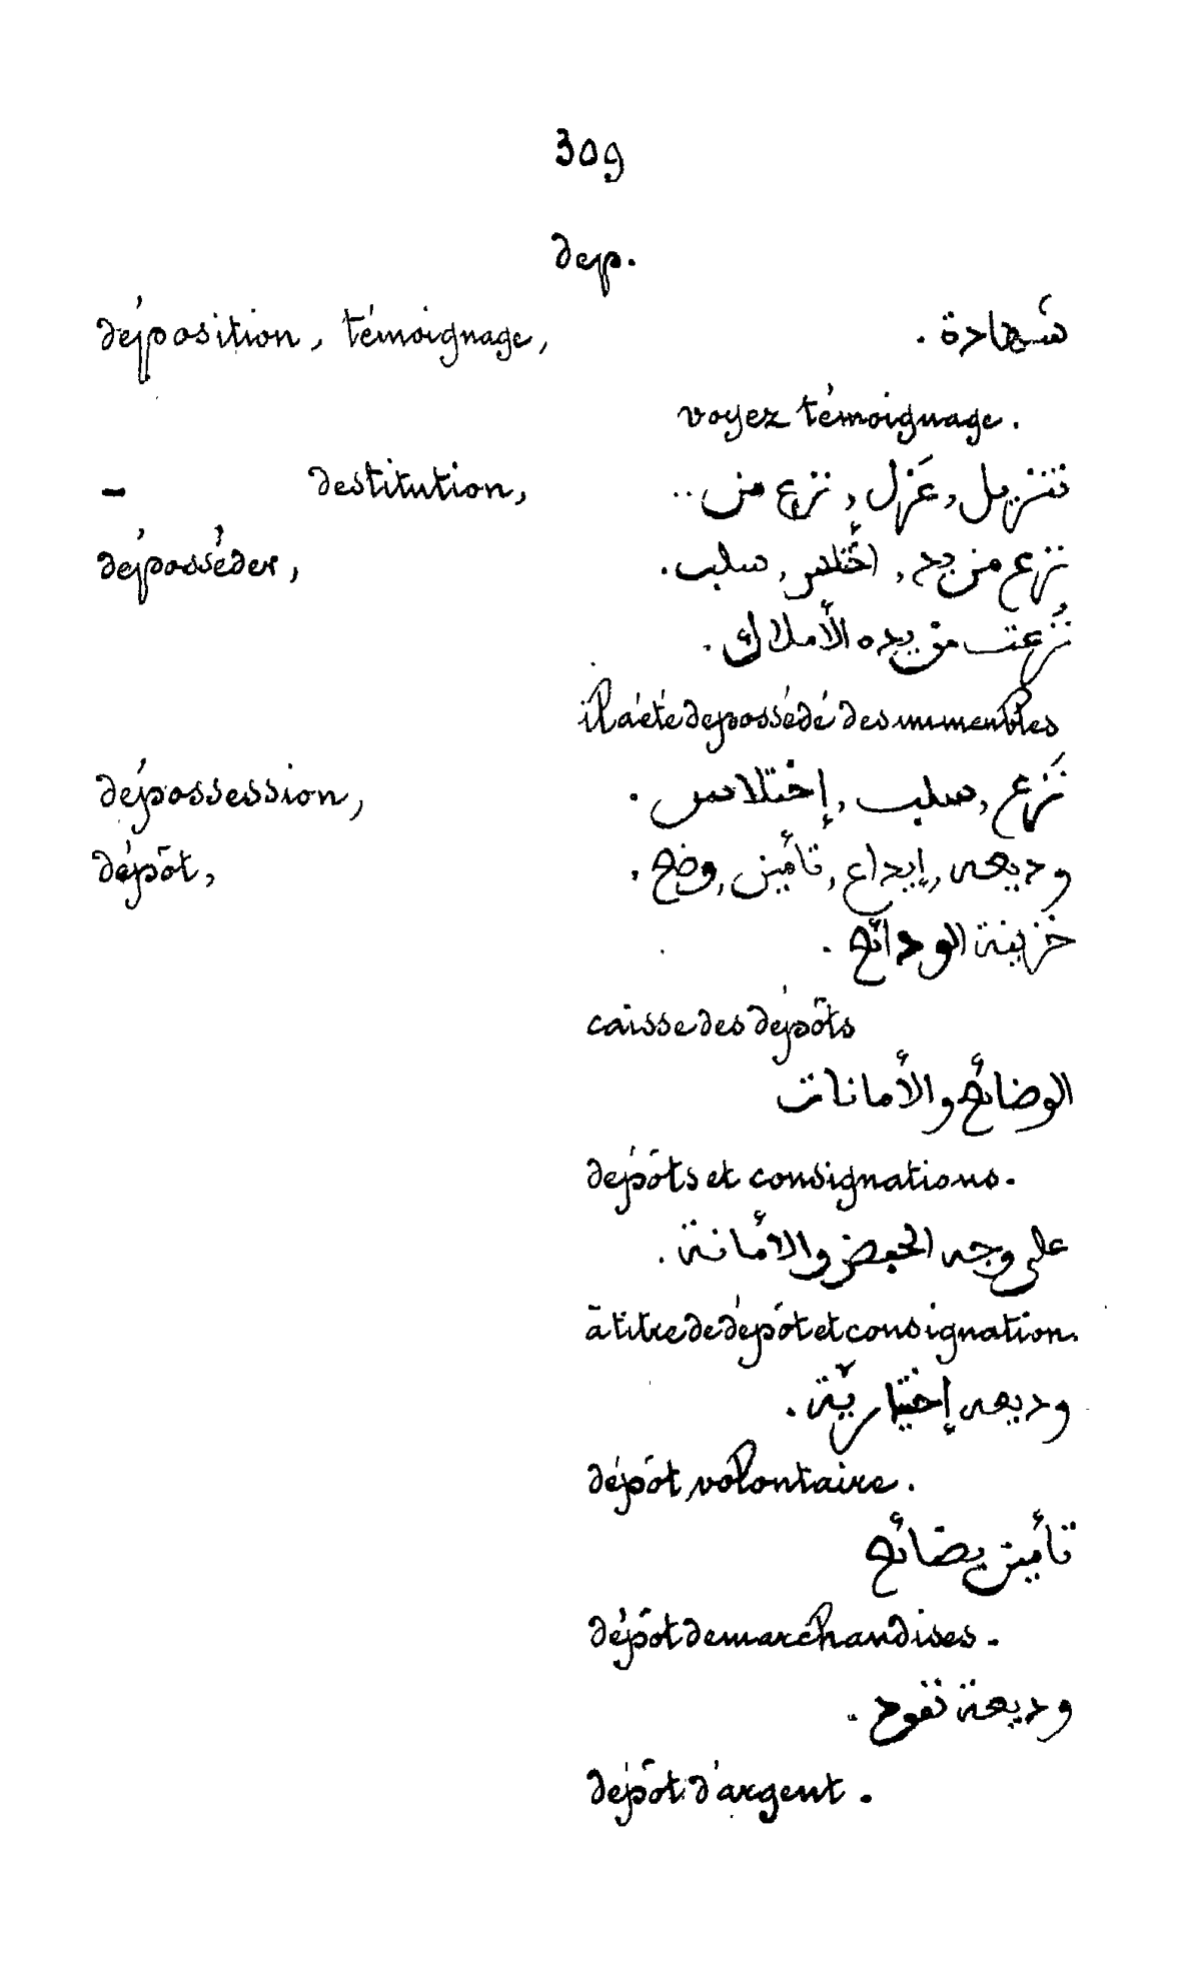 309
dep.
déposition, témoignage, شَهادة .
voyez témoignage.
– destitution, تنزيل, عَزل, نزع من ..
déposséder, نزع من يد, اخْتلس, سلب.
نُزعت من يده الأملاك.
il a été depossédé des immeubles
dépossession, نَزع, سلب, إختلاس.
dépôt, وديعه, إيداع, تأمين, وضع.
خزينة الودائع.
caisse des dépôts
الوضائع والأمانات
depôts et consignations.
على وجه والأمانة.
à titre de dépôt et consignation.
وديعه إختياريّة.
dépôt volontaire.
تأمين بضائع
dépôt de marchandises.
وديعة نقود.
depôt d'argent.